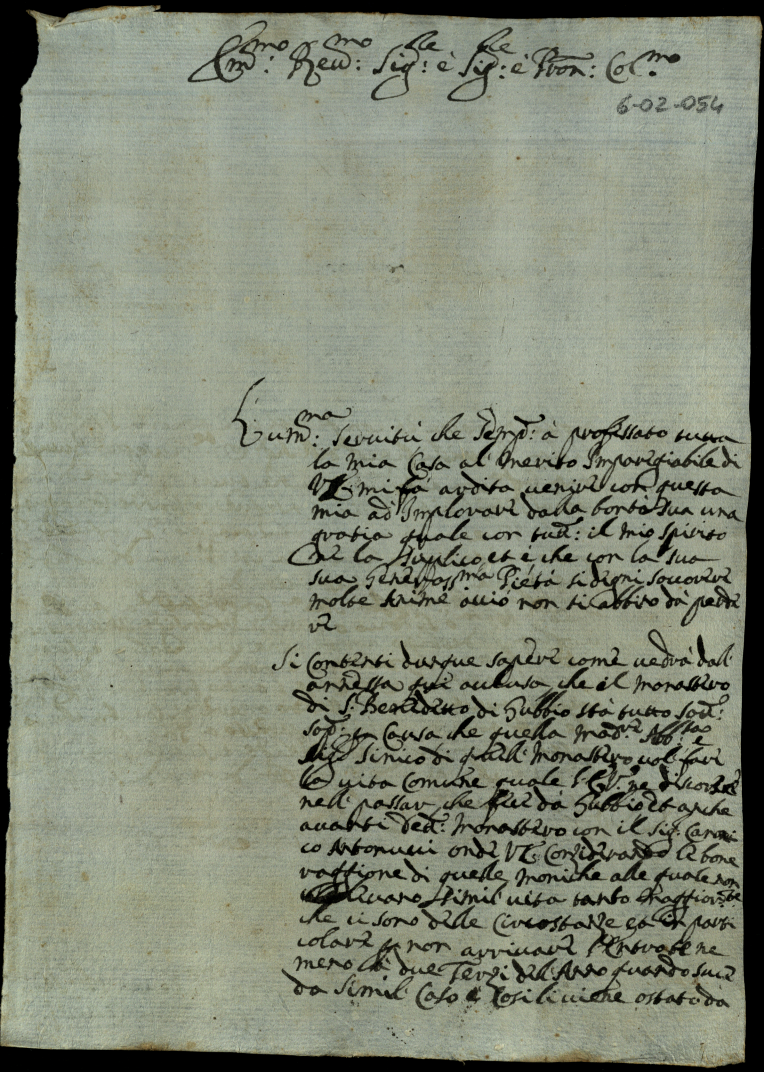 Em:mo Reu:mo Sig:re è Sig:re è Pron: Col:mo
6-02-054
L'um:ma seruitù che semp: à professato tutta
la mia Casa al merito Imparegiabile di
VE: mi fà ardita uenire con questa
mia ad Implorare dalla bontà sua una
gratia quale con tutt: il mio spirito
ne la suplico et è che con la sua
sua Generosissma Pietà si degni socorere
molte anime acciò non si abbino dà perde
re
Si Contenti dunque sapere come uedrà dall
annessa qui acclusa che il monastero
di S: Benedetto di Gubbio stà tutto sott:
sop: Causa che quella Mad:re Abb:sa è
Sig: Sinico di quell: monastero uol fare
la uita Comune quale ne discorse
nell: passar che fece da Gubbio et anche
auanti dett: monastero con il Sig: Canoni
co Antonucci onde VE: Considerando le bone
raggione di quelle moniche alle quale non
simil uita tanto maggior:te
che ci sono delle Circostanze et in parti
colare non arriuare l'Entrate ne
meno li due Terzi del Anno quando suce
da simil: Caso è Cosi li uiene ostato dà